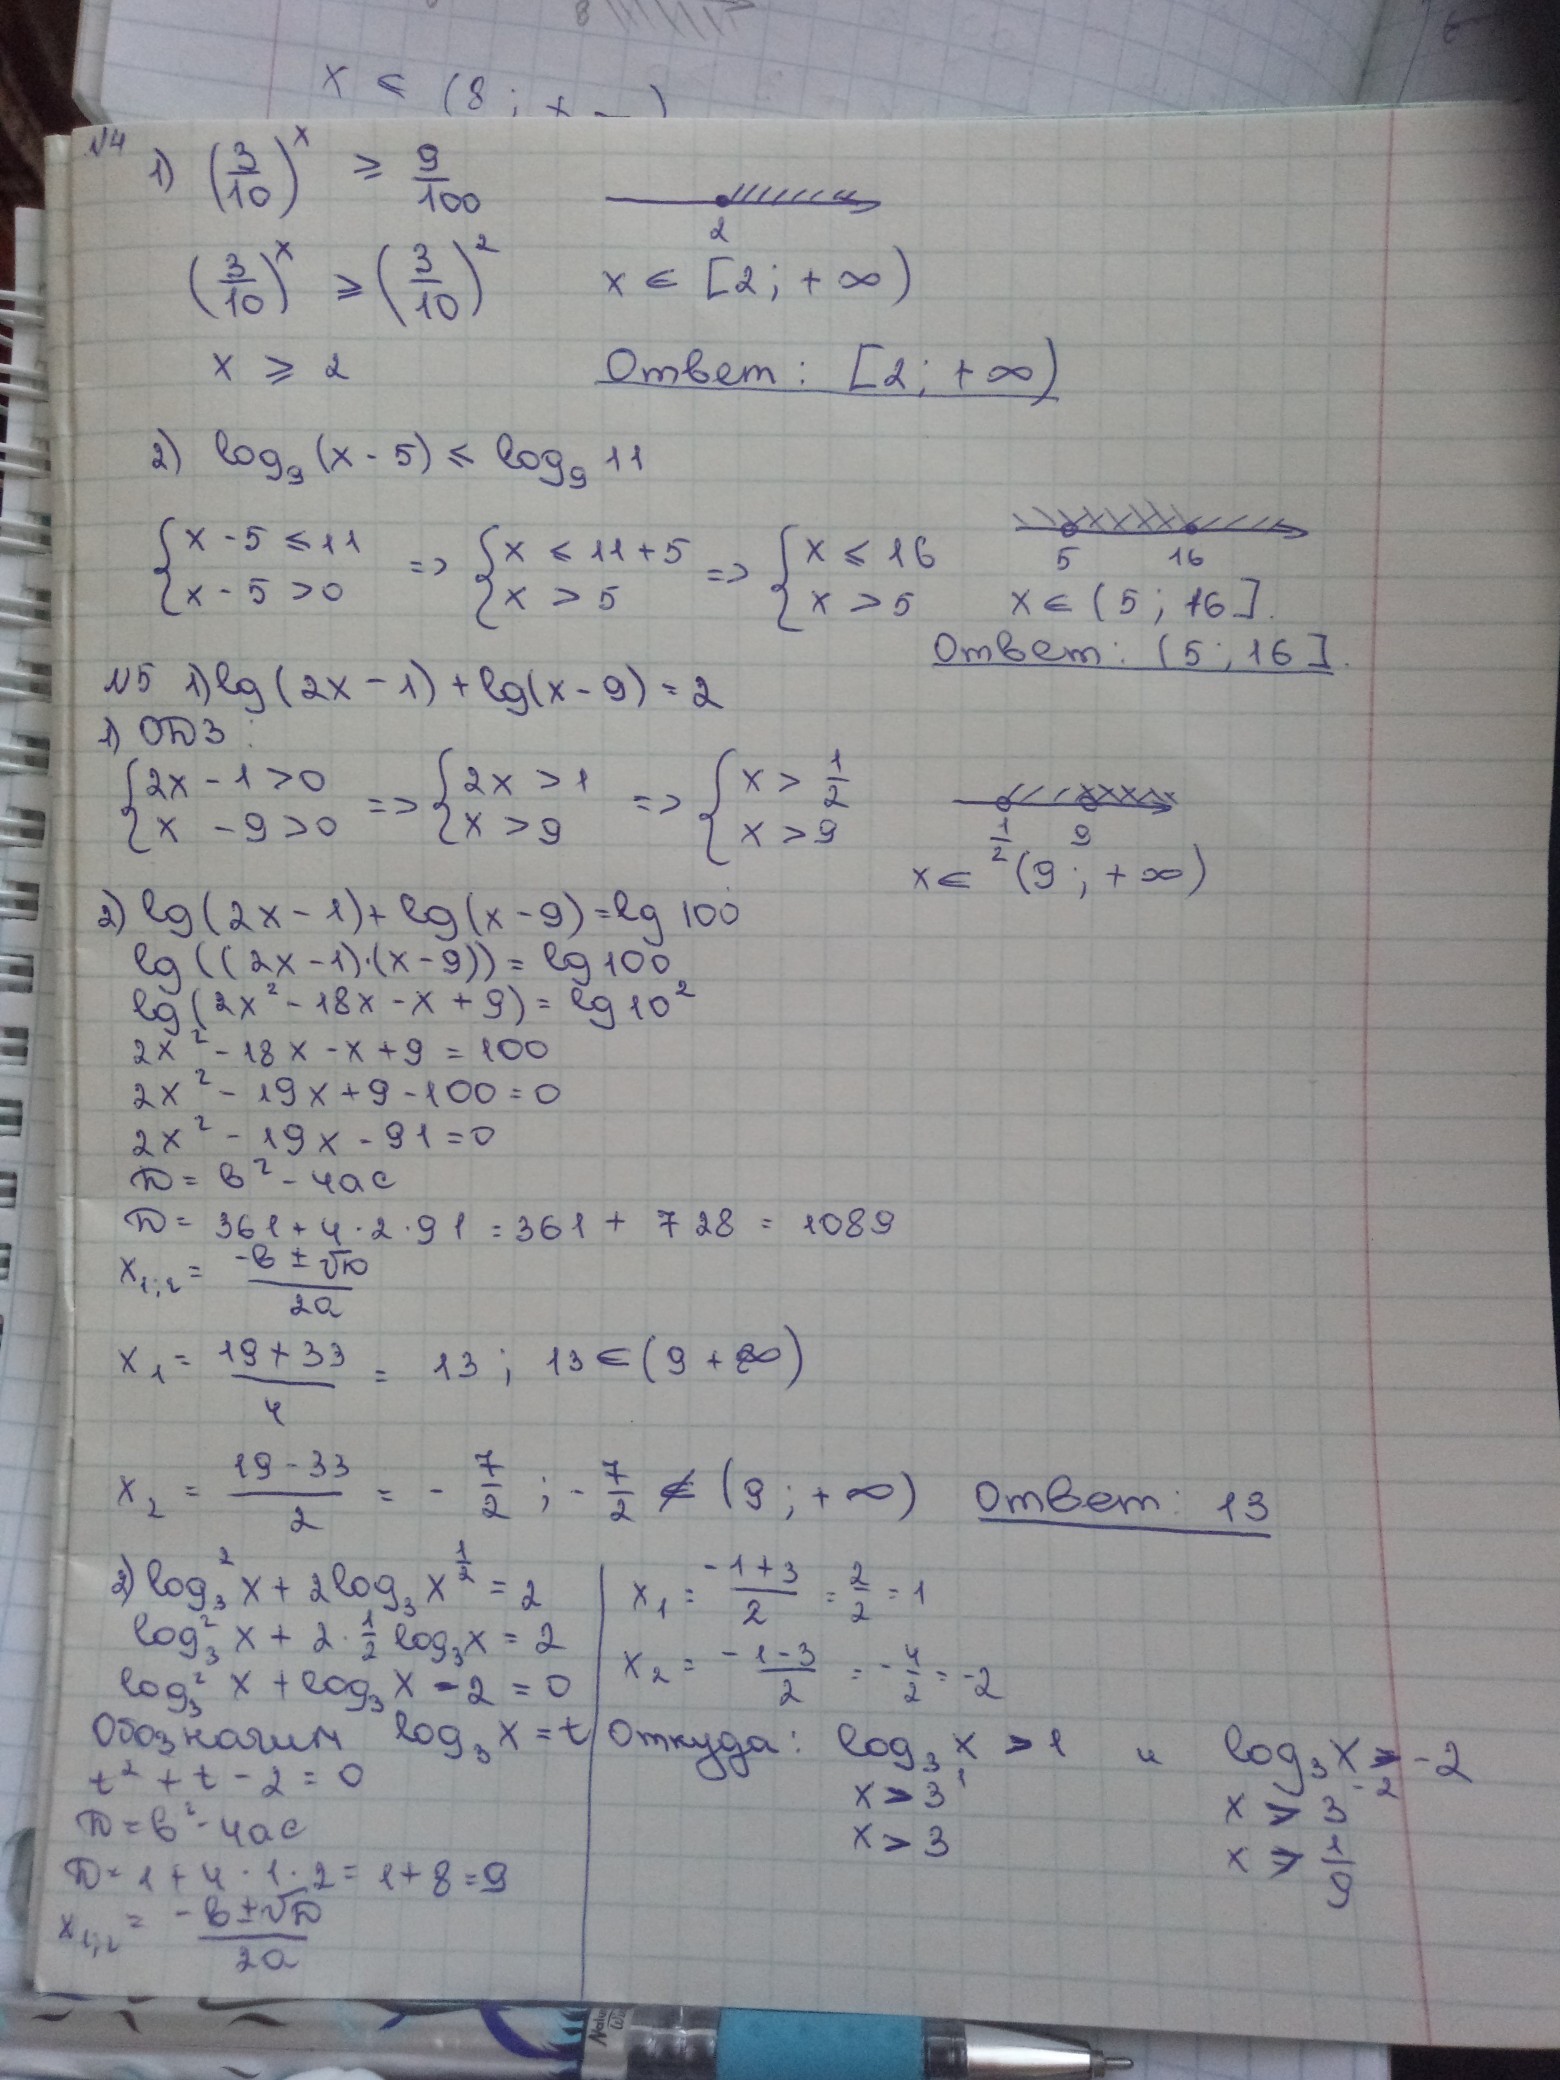 x ∈ (8; + )
№4
1) (3/10)^x ⩾ 9/100
2
(3/10)^x ⩾ (3/10)^2
x ∈ [2; +∞)
x ⩾ 2
Ответ: [2; +∞)
2) log₉(x - 5) ⩽ log₉ 11
{x - 5 ⩽ 11 => {x ⩽ 11 + 5 => {x ⩽ 16
{x - 5 > 0 {x > 5 {x > 5
5 16
x ∈ (5; 16].
Ответ: (5; 16].
№5 1) lg(2x - 1) + lg(x - 9) = 2
1) ОДЗ:
{2x - 1 > 0 => {2x > 1 => {x > 1/2
{x - 9 > 0 {x > 9 {x > 9
1/2 9
x ∈ (9; +∞)
2) lg(2x - 1) + lg(x - 9) = lg 100
lg((2x - 1)·(x - 9)) = lg 100
lg(2x² - 18x - x + 9) = lg 10²
2x² - 18x - x + 9 = 100
2x² - 19x + 9 - 100 = 0
2x² - 19x - 91 = 0
D = в² - 4ас
D = 361 + 4·2·91 = 361 + 728 = 1089
x₁;₂ = (-в ± √D)/2а
x₁ = (19 + 33)/4 = 13; 13 ∈ (9 + ∞)
x₂ = (19 - 33)/2 = - 7/2; - 7/2 ∉ (9; +∞) Ответ: 13
2) log₃² x + 2log₃ x^(1/2) = 2
log₃² x + 2·1/2 log₃ x = 2
log₃² x + log₃ x - 2 = 0
Обозначим log₃ x = t
t² + t - 2 = 0
D = в² - 4ас
D = 1 + 4·1·2 = 1 + 8 = 9
x₁;₂ = (-в ± √D)/2а
x₁ = (-1 + 3)/2 = 2/2 = 1
x₂ = (-1 - 3)/2 = - 4/2 = -2
Откуда: log₃ x > 1 и log₃ x > -2
x > 3¹ x > 3⁻²
x > 3 x > 1/9